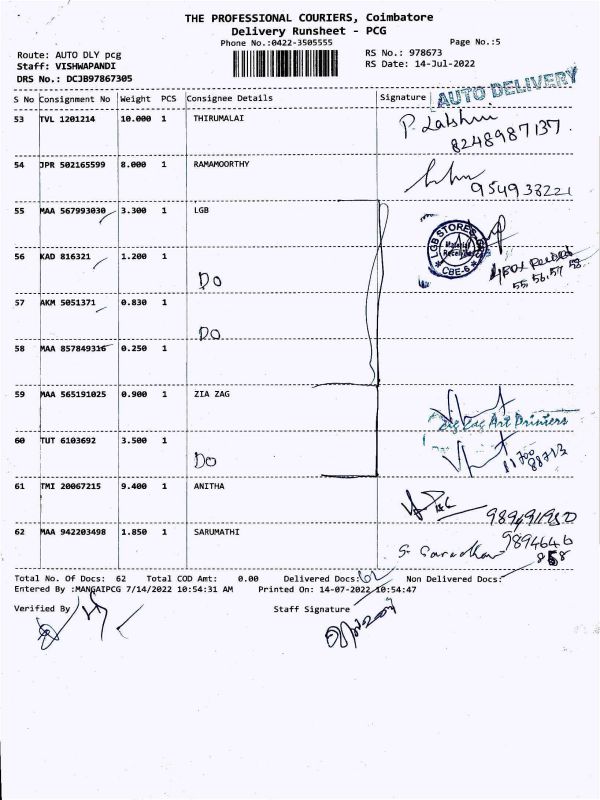 THE PROFESSIONAL COURIERS, Coimbatore
Delivery Runsheet - PCG
Phone No.:0422-3505555 Page No.:5
Route: AUTO DLY pcg RS No.: 978673
Staff: VISHWAPANDI RS Date: 14-Jul-2022
DRS No.: DCJB97867305
AUTO DELIVERY
S No Consignment No Weight PCS Consignee Details Signature
53 TVL 1201214 10.000 1 THIRUMALAI P. Lakshmi
8248987137
54 JPR 502165599 8.000 1 RAMAMOORTHY
954938221
55 MAA 567993030 3.300 1 LGB
LGB STORES
Material Received
CBE-6
56 KAD 816321 1.200 1
Do
55, 56, 57, 58
57 AKM 5051371 0.830 1
Do
58 MAA 857849316 0.250 1
59 MAA 565191025 0.900 1 ZIA ZAG
Zig Zag Art Printers
60 TUT 6103692 3.500 1
Do
61 TMI 20067215 9.400 1 ANITHA
62 MAA 942203498 1.850 1 SARUMATHI
Total No. Of Docs: 62 Total COD Amt: 0.00 Delivered Docs: 62 Non Delivered Docs:
Entered By :MANGAIPCG 7/14/2022 10:54:31 AM Printed On: 14-07-2022 10:54:47
Verified By Staff Signature